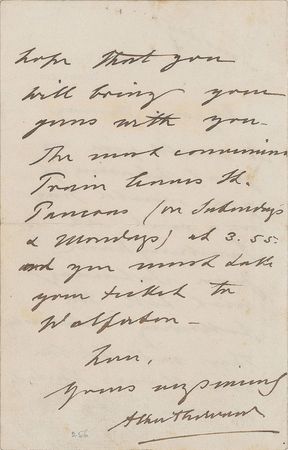 hope that you
will bring your
guns with you -
The most convenient
Train leaves St.
Pancras (on Saturdays
& Mondays) at 3.55.
and you must take
your ticket to
Wolferton -
I am,
Yours very sincerely
Albert Edward
256